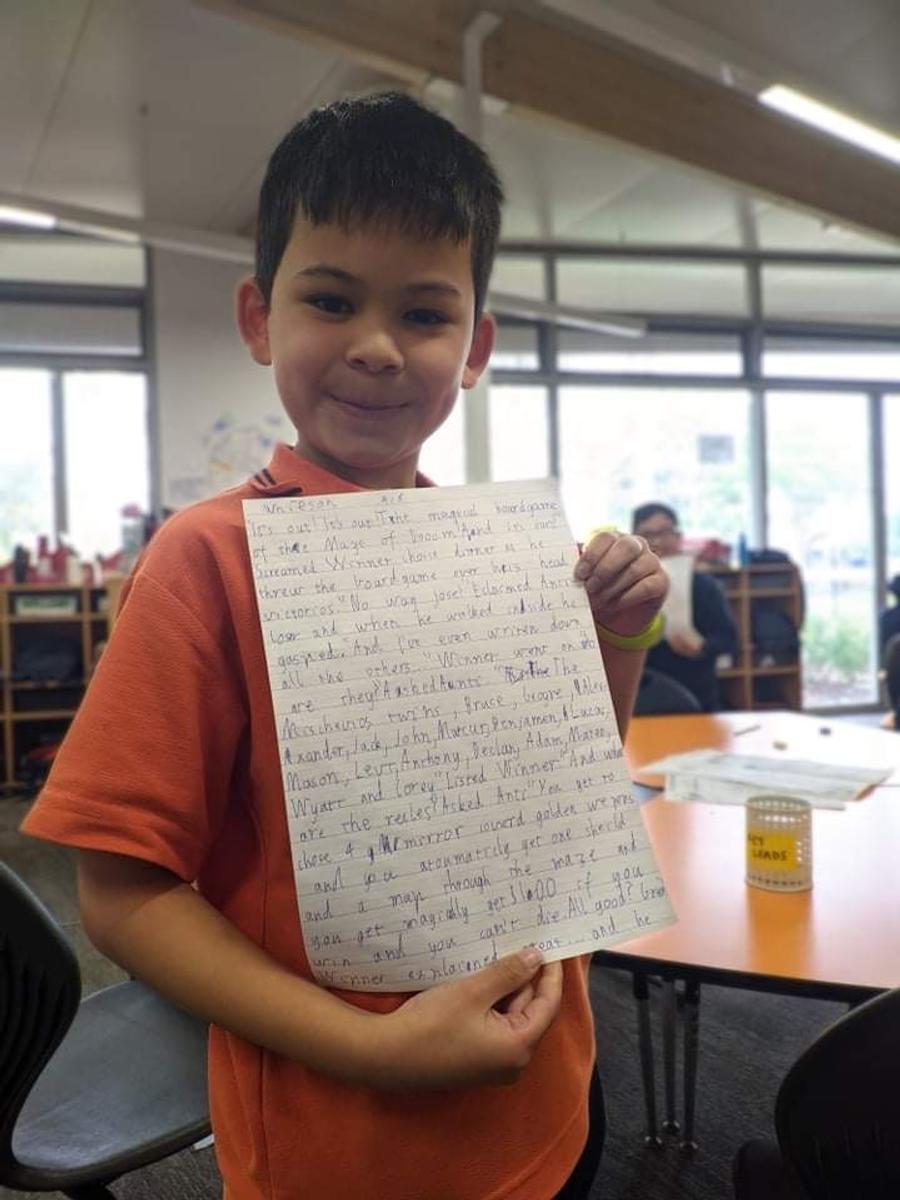 It's out! It's out! The magical boardgame
of the Maze of Doom! And in one!"
Screamed Winner choice dinner as he
threw the boardgame over heis head
victorios. "No way Jose!" Exlasmed Anti
loser and when he walked inside he
gasped. "And I've even writen down
all the others." Winner went on "
are they? Asked Aunti. "The
Mischeivios twins, Bruce, Geogre, Alex
Axander, Jack, John, Marcus, Benjamen, Lucas,
Mason, Levi, Anthony, Declan, Adam, Mateo,
Wyatt and Corey" Listed Winner "And what
are the reeles? Asked Anti "You get to
chose 4 mirror coverd golden
and you atoumaticly get one sheild
and a map through the maze and
you get magically get $1000 if you
win and you can't die. All good? Great
Winner explained and he
GET
LEADS